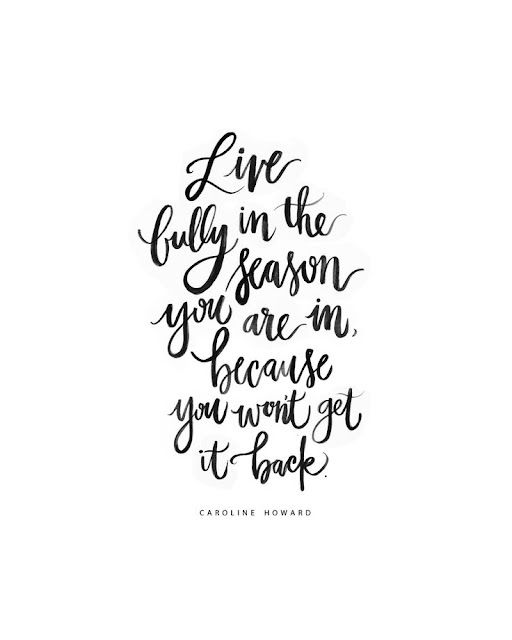 Live
fully in the
season
you are in,
because
you won't get
it back.
CAROLINE HOWARD